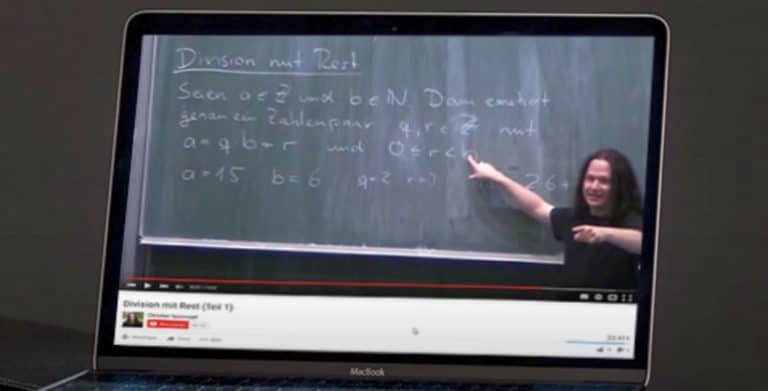 Division mit Rest
Seien a ∈ ℤ und b ∈ ℕ. Dann existiert
genau ein Zahlenpaar q, r ∈ ℤ mit
a = q b + r und 0 ≤ r <
a = 15 b = 6 q = 2 r = 3 26+
Division mit Rest (Teil 1)
Christian Spannagel
MacBook